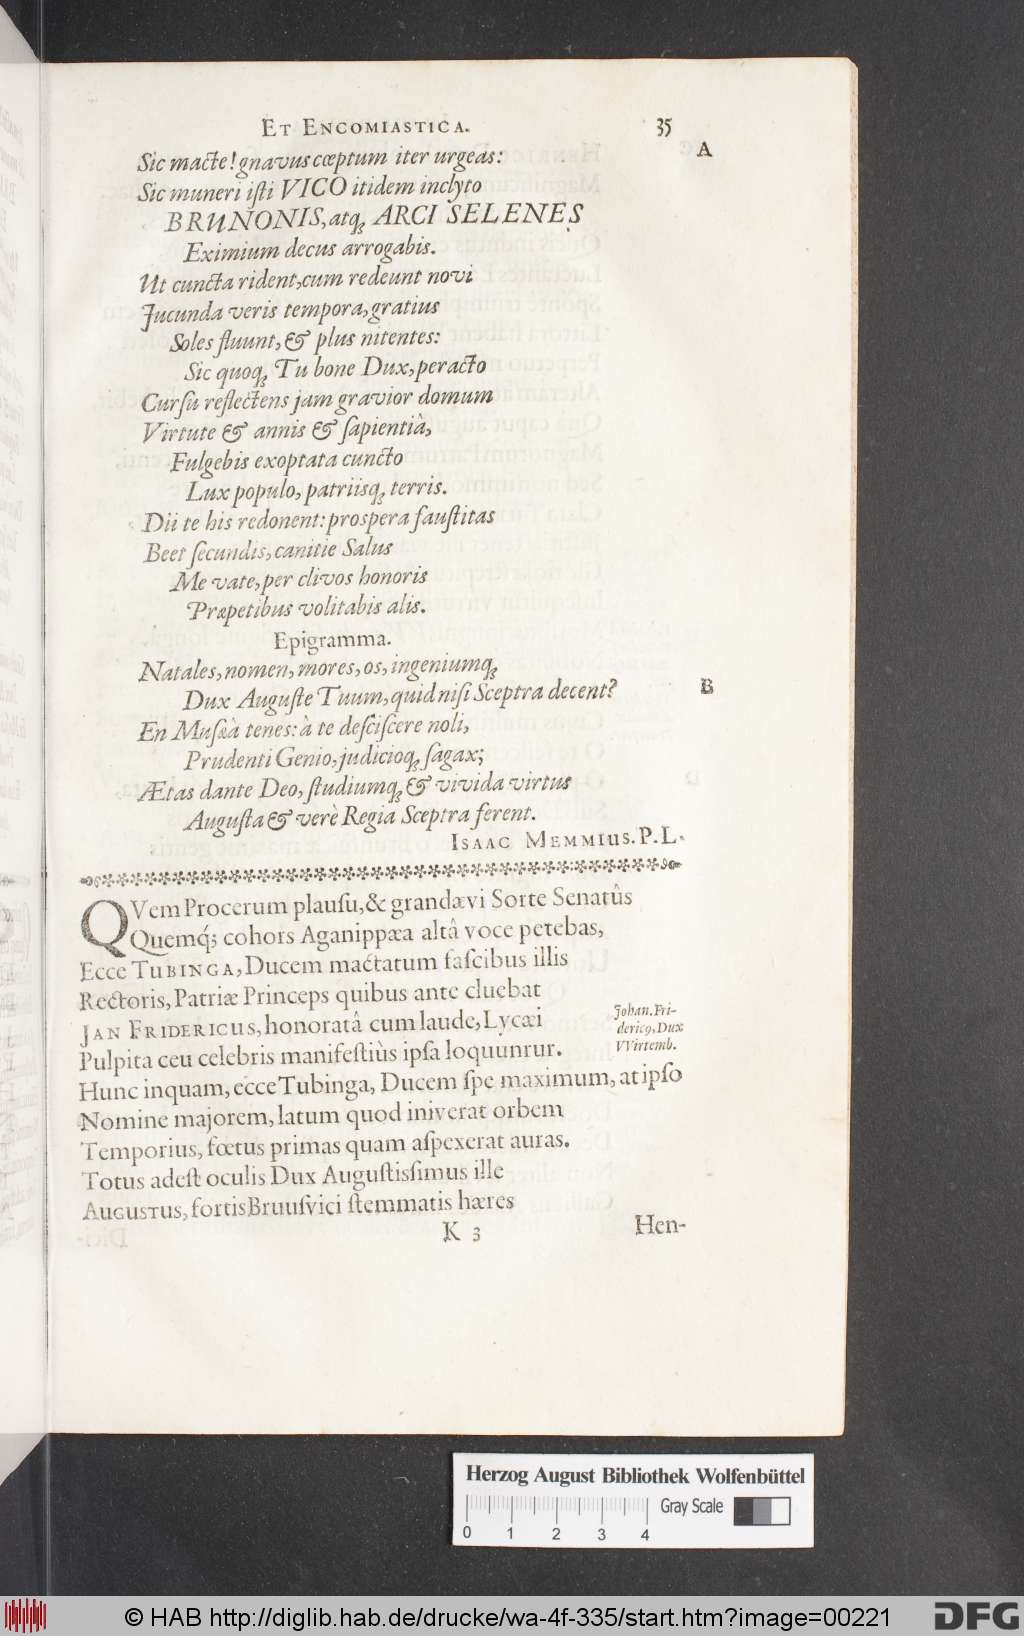 ET ENCOMIASTICA. 35
A
Sic macte! gnavus cœptum iter urgeas:
Sic muneri iſti VICO itidem inclyto
BRUNONIS, atq; ARCI SELENES
Eximium decus arrogabis.
Ut cuncta rident, cum redeunt novi
Jucunda veris tempora, gratius
Soles fluunt, & plus nitentes:
Sic quoq; Tu bone Dux, peracto
Curſu reflectens jam gravior domum
Virtute & annis & ſapientiâ,
Fulgebis exoptata cuncto
Lux populo, patriisq; terris.
Dii te his redonent: proſpera fauſtitas
Beet ſecundis, canitie Salus
Me vate, per clivos honoris
Præpetibus volitabis alis.
Epigramma.
Natales, nomen, mores, os, ingeniumq;
Dux Auguſte Tuum, quid niſi Sceptra decent?
B
En Muſæà tenes: à te deſciſcere noli,
Prudenti Genio, judicioq; ſagax;
Ætas dante Deo, ſtudiumq; & vivida virtus
Auguſta & verè Regia Sceptra ferent.
ISAAC MEMMIUS. P. L.
QVem Procerum plauſu, & grandævi Sorte Senatûs
Quemq́; cohors Aganippæa altâ voce petebas,
Ecce TUBINGA, Ducem mactatum faſcibus illis
Rectoris, Patriæ Princeps quibus ante cluebat
JAN FRIDERICUS, honoratâ cum laude, Lycæi
Pulpita ceu celebris manifeſtiùs ipſa loquunrur.
Johan. Fri-
dericꝰ, Dux
VVirtemb.
Hunc inquam, ecce Tubinga, Ducem ſpe maximum, at ipſo
Nomine majorem, latum quod iniverat orbem
Temporius, fœtus primas quam aſpexerat auras.
Totus adeſt oculis Dux Auguſtiſsimus ille
AUGUSTUS, fortis Bruuſvici ſtemmatis hæres
K 3 Hen-
Herzog August Bibliothek Wolfenbüttel
Gray Scale
0 1 2 3 4
© HAB http://diglib.hab.de/drucke/wa-4f-335/start.htm?image=00221
DFG